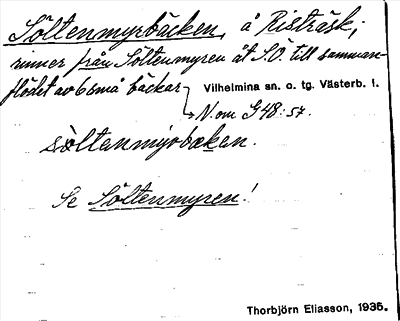 Söltenmyrbäcken, å Risträsk;
rinner från Söltenmyren åt S.O. till samman-
flödet av 6 små bäckar
Vilhelmina sn. o. tg. Västerb. l.
N om G48:57.
söltenmyrbäken.
Se Söltenmyren!
Thorbjörn Eliasson, 1935.